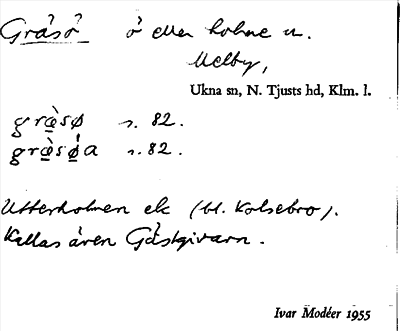 Gräsö ö eller holme n.
Melby,
Ukna sn, N. Tjusts hd, Klm. l.
græ̀sø s. 82.
græ̀sø̀a s. 82.
Utterholmen ek (bl. Kolsebro).
Kallas även Gästgivarn.
Ivar Modéer 1955